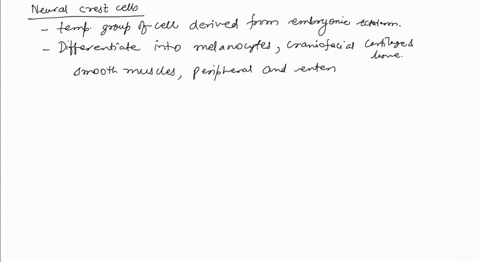 Neural crest cells
- temp. group of cell derived from embryonic ectoderm.
- Differentiate into melanocytes, craniofacial cartilage &
bone.
smooth muscles, peripheral and enter